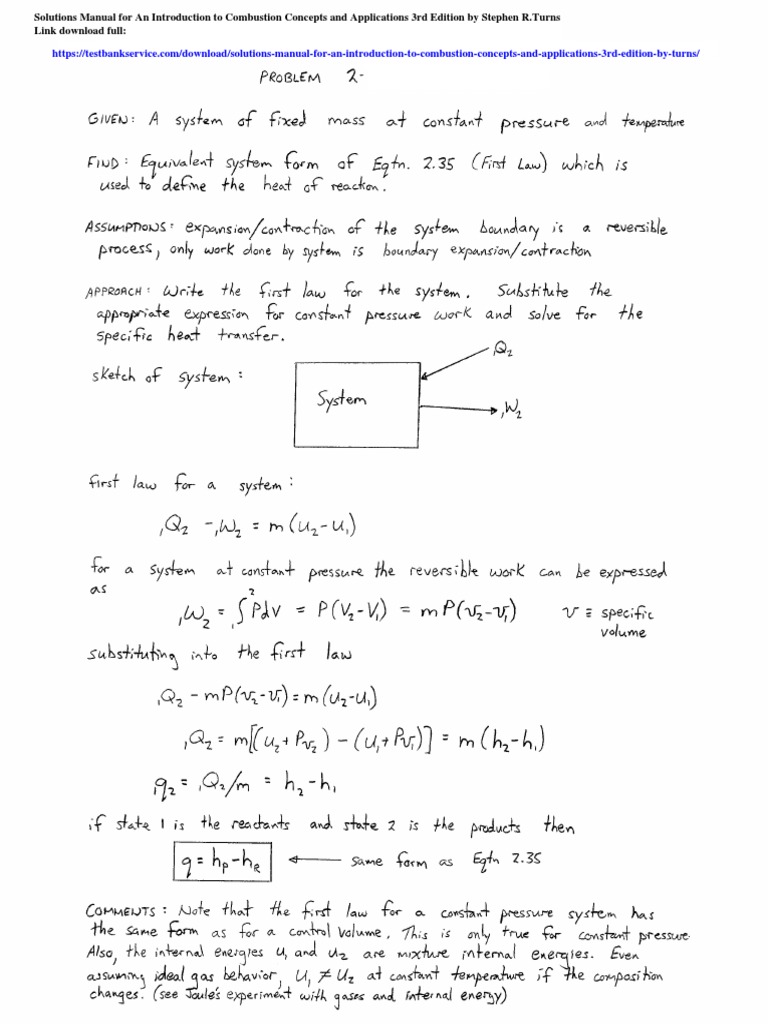 Solutions Manual for An Introduction to Combustion Concepts and Applications 3rd Edition by Stephen R.Turns
Link download full:
https://testbankservice.com/download/solutions-manual-for-an-introduction-to-combustion-concepts-and-applications-3rd-edition-by-turns/
PROBLEM 2-
GIVEN: A system of fixed mass at constant pressure and temperature
FIND: Equivalent system form of Eqtn. 2.35 (First Law) which is
used to define the heat of reaction.
ASSUMPTIONS: expansion/contraction of the system boundary is a reversible
process, only work done by system is boundary expansion/contraction
APPROACH: Write the first law for the system. Substitute the
appropriate expression for constant pressure work and solve for the
specific heat transfer.
sketch of system:
₁Q₂
System
₁W₂
first law for a system:
₁Q₂ - ₁W₂ = m(u₂-u₁)
for a system at constant pressure the reversible work can be expressed
as
₁W₂ = ∫₁² PdV = P(V₂-V₁) = mP(v₂-v₁) v ≡ specific
volume
substituting into the first law
₁Q₂ - mP(v₂-v₁) = m(u₂-u₁)
₁Q₂ = m[(u₂+Pv₂) - (u₁+Pv₁)] = m(h₂-h₁)
₁q₂ = ₁Q₂/m = h₂-h₁
if state 1 is the reactants and state 2 is the products then
q = hₚ-hR ← same form as Eqtn 2.35
COMMENTS: Note that the first law for a constant pressure system has
the same form as for a control volume. This is only true for constant pressure.
Also, the internal energies u₁ and u₂ are mixture internal energies. Even
assuming ideal gas behavior, u₁ ≠ u₂ at constant temperature if the composition
changes. (see Joule's experiment with gases and internal energy)